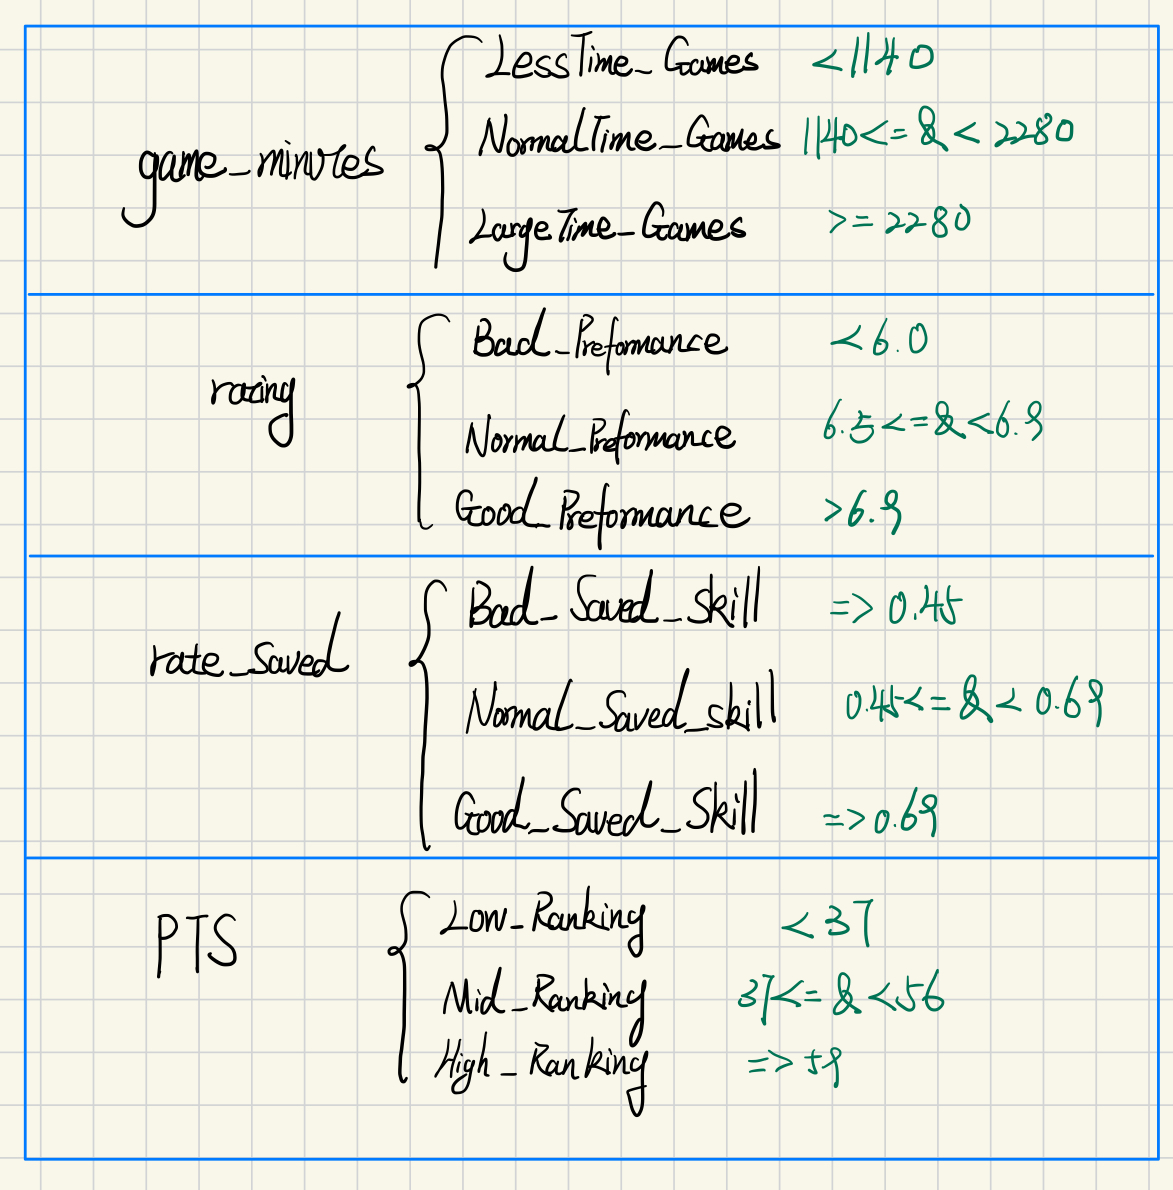 game_minutes
LessTime_Games <1140
NormalTime_Games 1140<= & < 2280
LargeTime_Games >= 2280
rating
Bad_Preformance <6.0
Normal_Preformance 6.5<=&<6.9
Good_Preformance >6.9
rate_Saved
Bad_Saved_Skill => 0.45
Normal_Saved_skill 0.45<= & < 0.69
Good_Saved_Skill => 0.69
PTS
Low_Ranking < 37
Mid_Ranking 37<= & <56
High_Ranking => 59